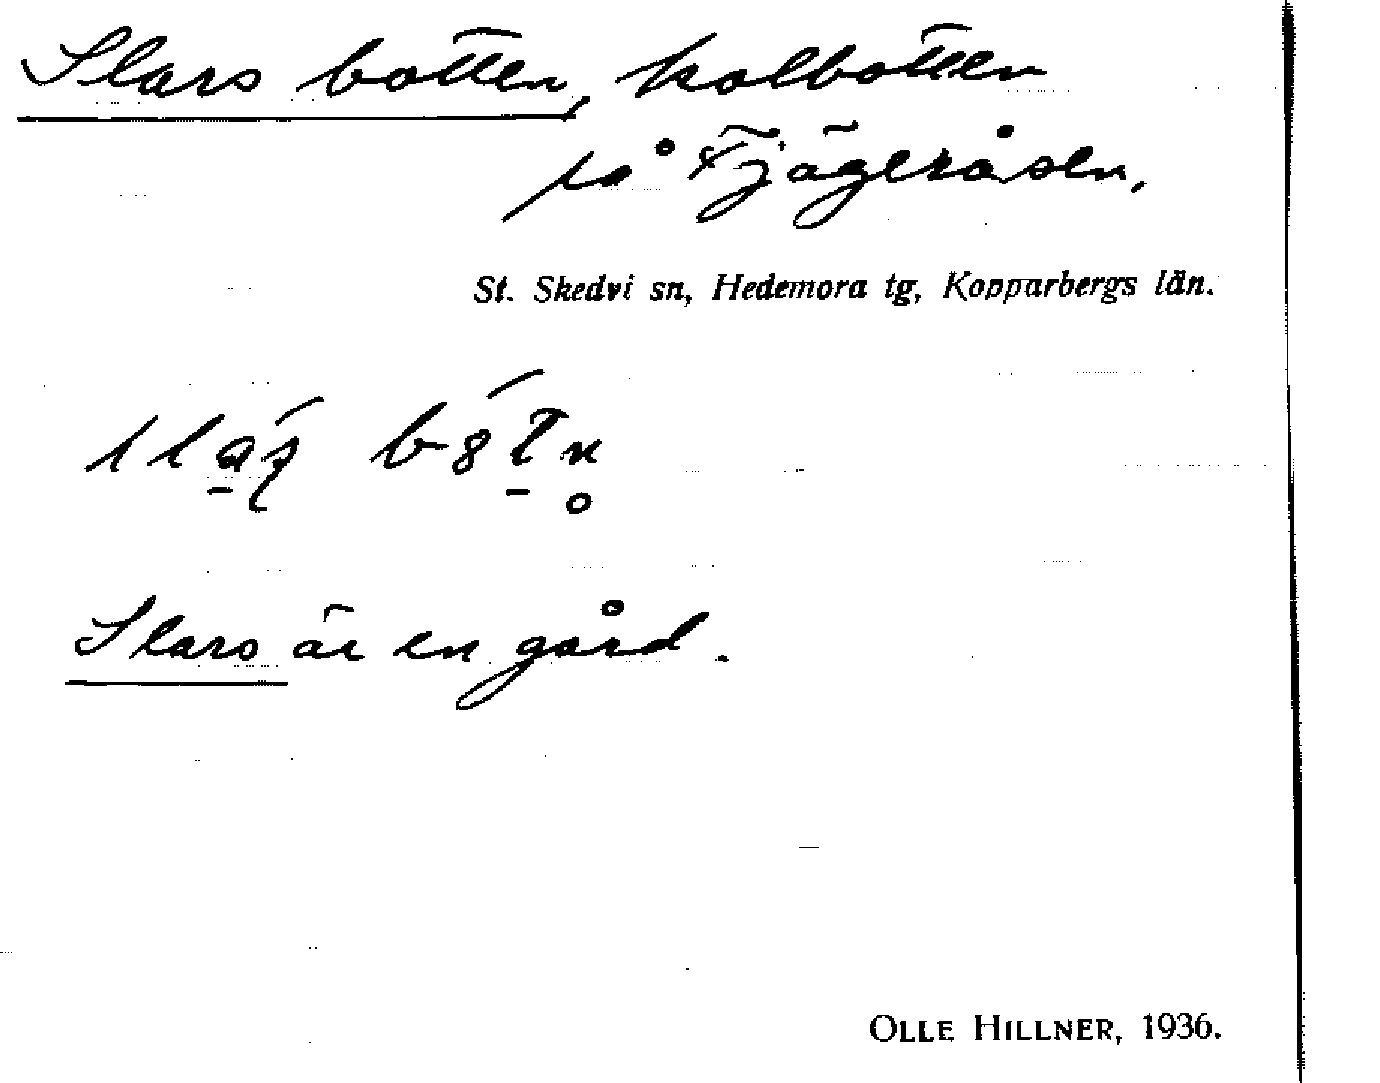 Slars botten, kolbotten
på Fjägeråsen.
St. Skedvi sn, Hedemora tg, Kopparbergs län.
Slars är en gård.
OLLE HILLNER, 1936.